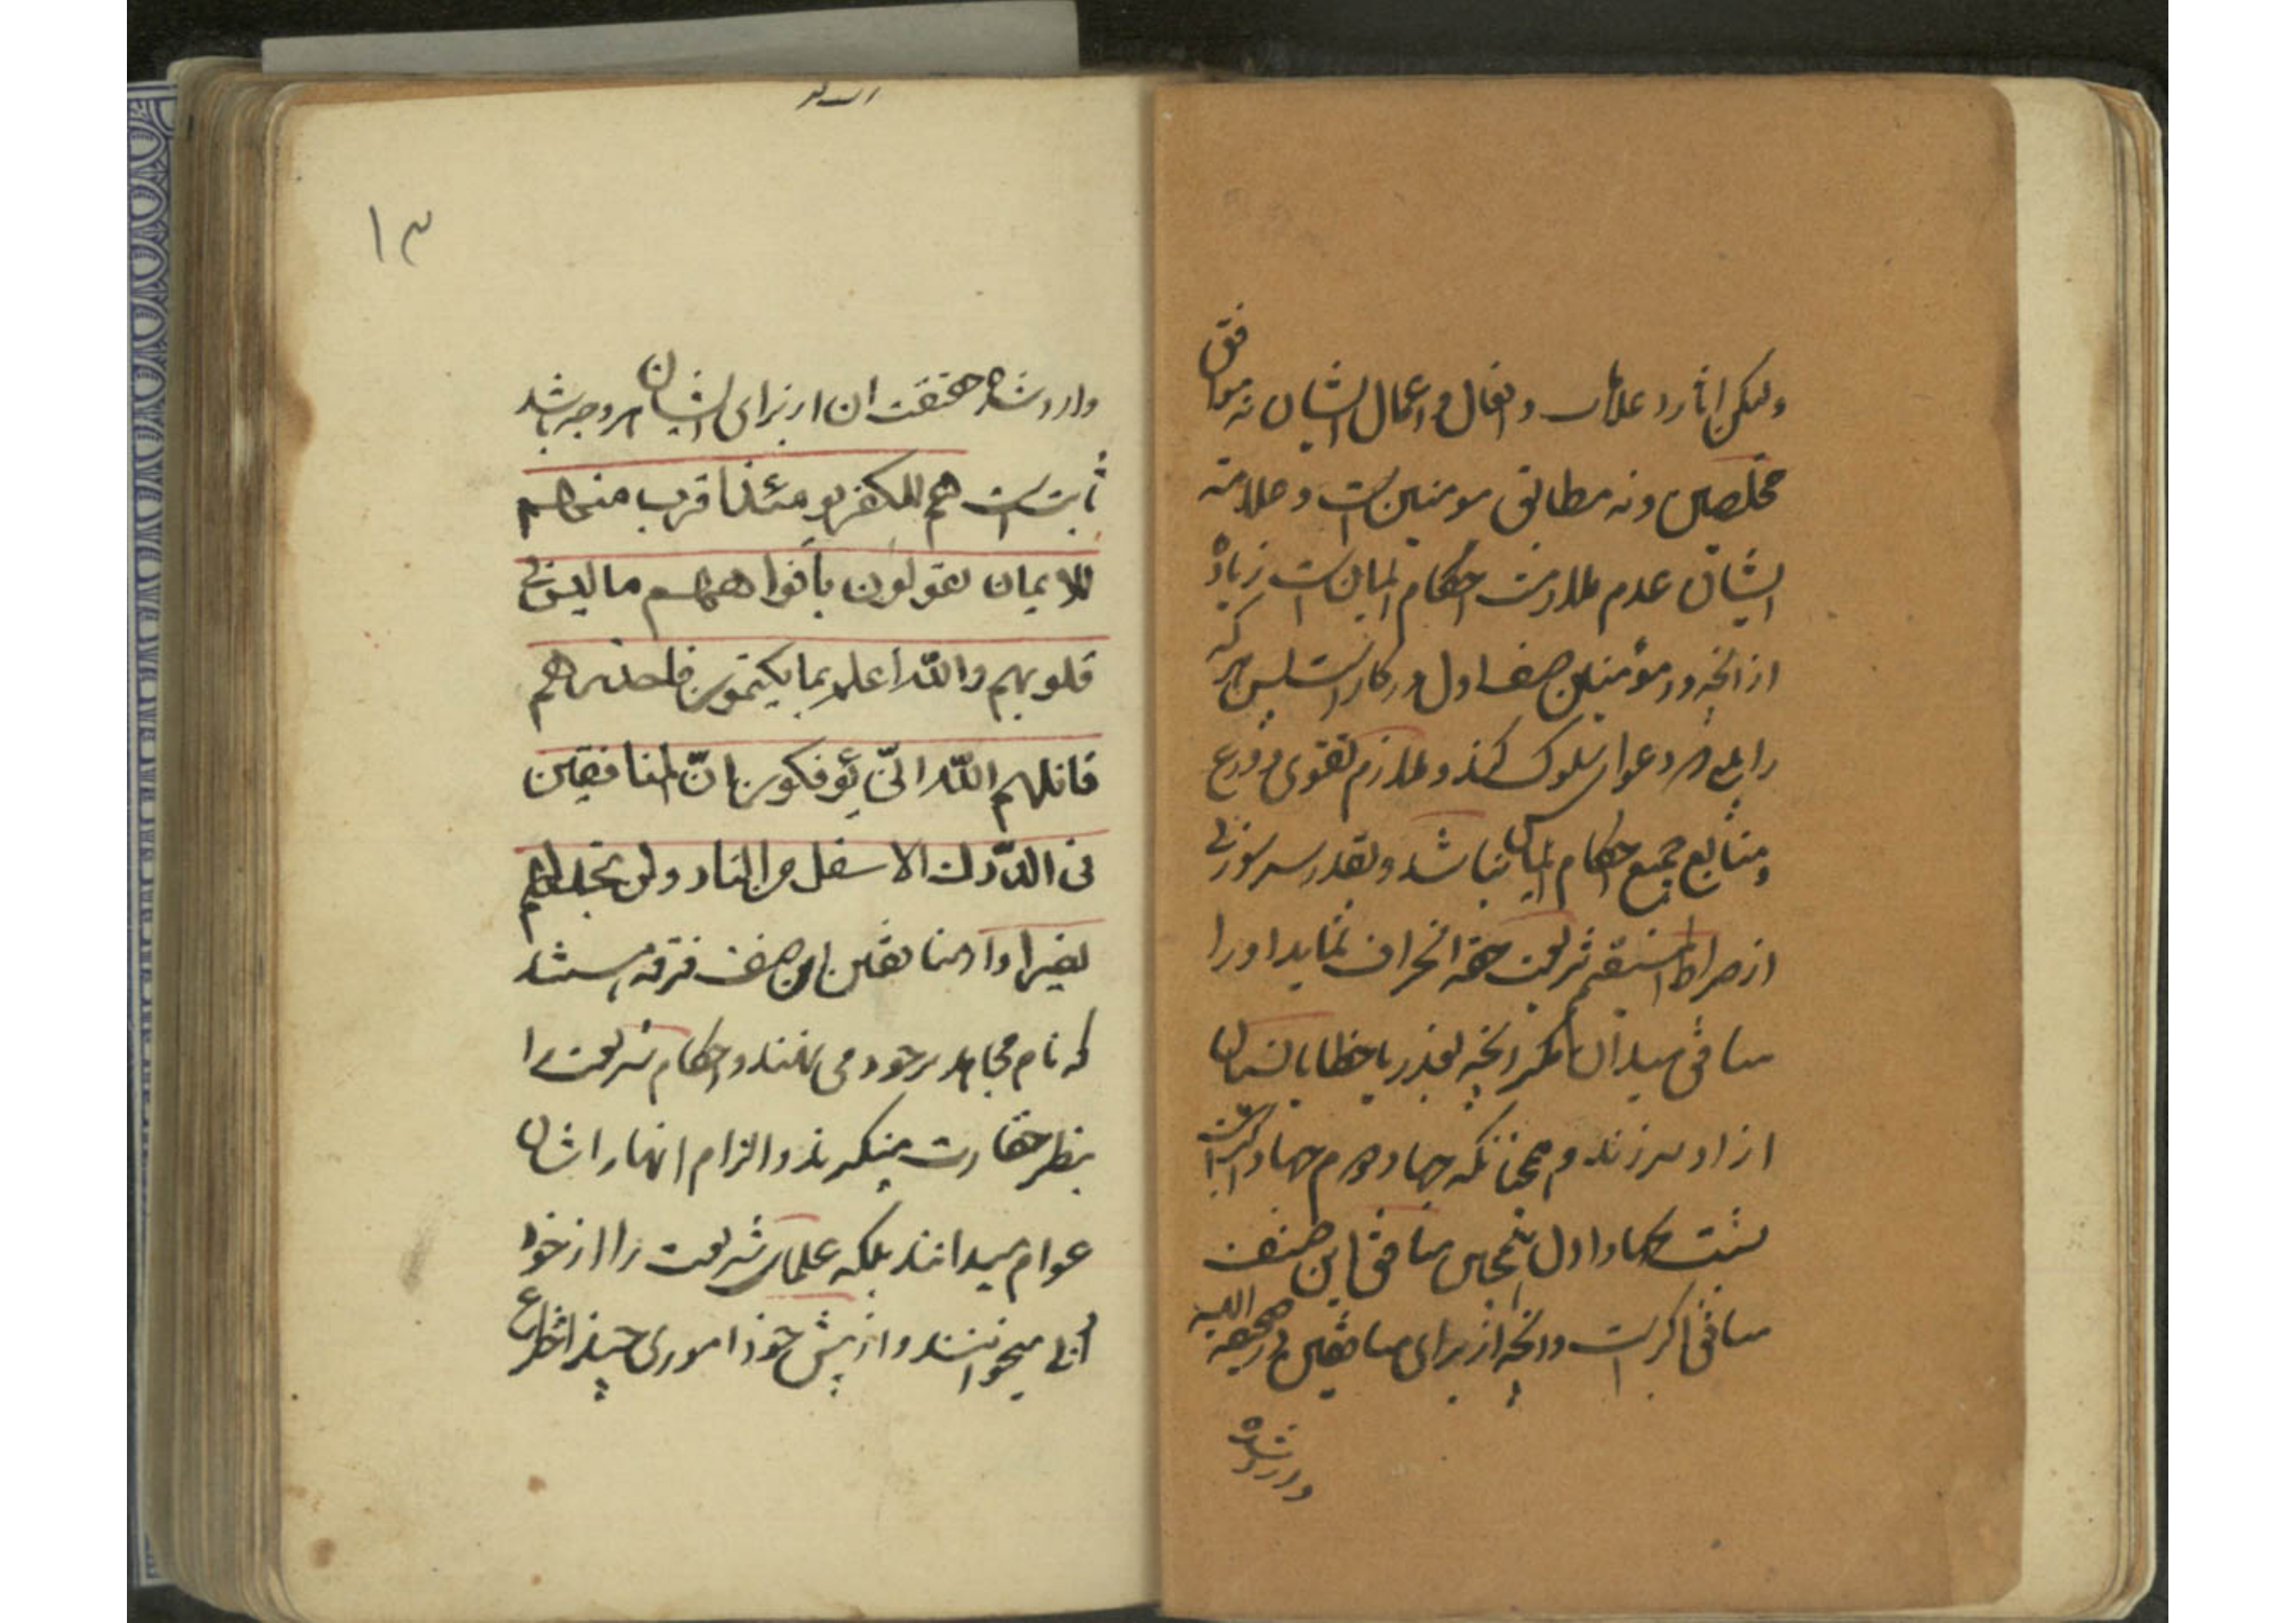 ولیکن اثار و علامات و افعال و اعمال ایشان نه موافق
مخلصین و نه مطابق مومنین است و علامة
ایشان عدم ملازمت احکام ایمان است زیاده
از انچه در مؤمنین صنف اول در کار است پس هر که
را بینی که دعوای سلوک کند و ملازم تقوی و ورع
و متابع جمیع احکام ایمان نباشد و بقدر سر سوزنی
از صراط المستقیم شریعت حقه انحراف نماید او را
منافق میدان مگر انچه بعذر یا خطا یا نسیان
از او سر زند و همچنانکه جهاد دوم جهاد اکبر است
نسبت بجهاد اول همچنین منافق این صنف
منافق اکبر است و انچه از برای منافقین در صحیفه الهیه
وارد شده
وارد شده حقیقت ان از برای ایشان بهر وجه باشد
ثابت است هم للکفر یومئذ اقرب منهم
للایمان یقولون بأفواههم ما لیس فی
قلوبهم والله أعلم بما یکتمون فاحذرهم
قاتلهم الله انّی یؤفکون انّ المنافقین
فی الدّرک الاسفل من النار ولن تجد لهم
نصیرا و از منافقین این صنف فرقه هستند
که نام مجاهد بر خود می نهند و احکام شریعت را
بنظر حقارت مینگرند و التزام انها را شان
عوام میدانند بلکه علمای شریعت را از خود
اجنبی میخوانند و از پیش خود اموری چند اختراع
۱۳